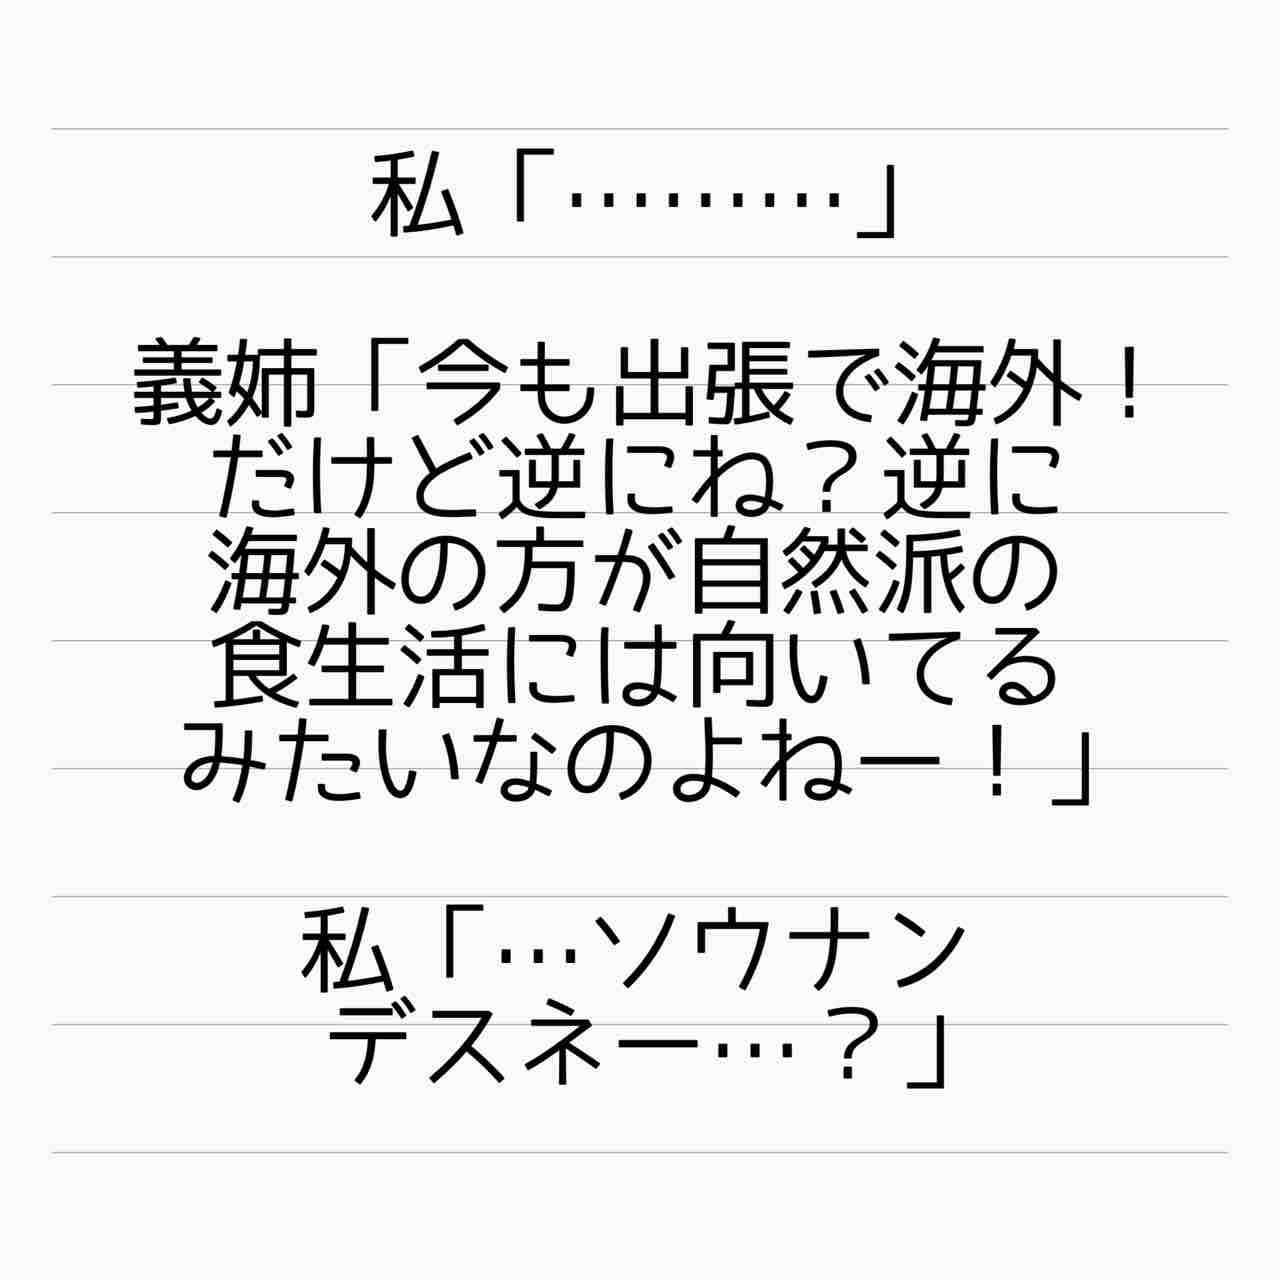 私「………」
義姉「今も出張で海外！
だけど逆にね？逆に
海外の方が自然派の
食生活には向いてる
みたいなのよねー！」
私「…ソウナン
デスネー…？」